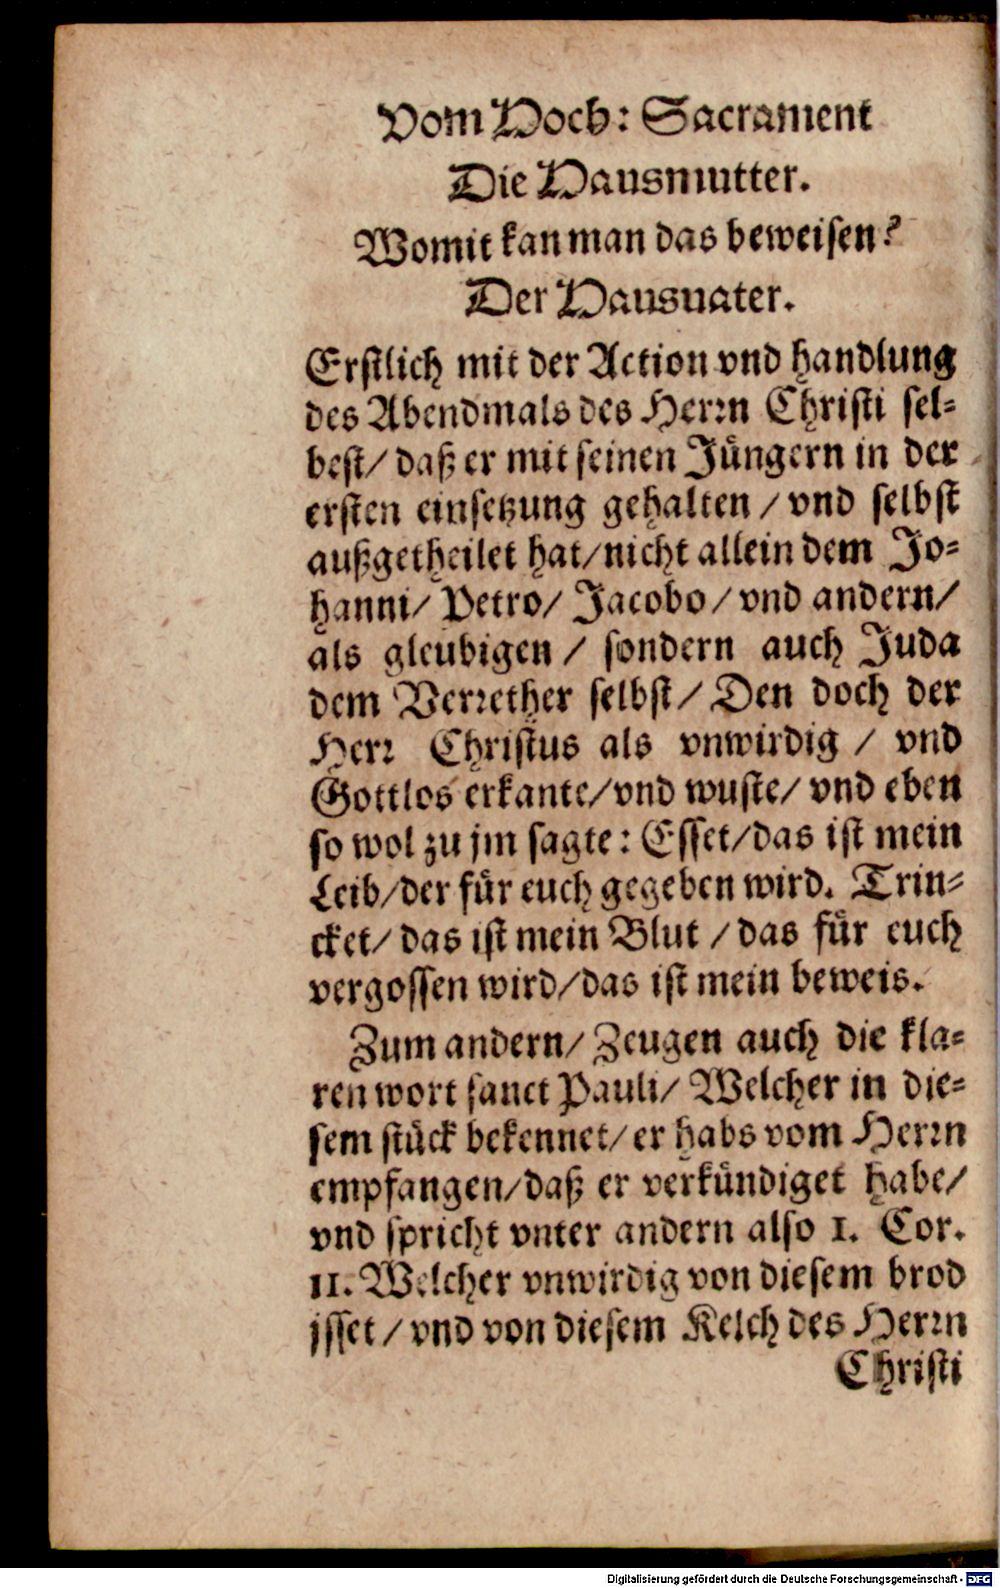 Vom Hoch: Sacrament
Die Hausmutter.
Womit kan man das beweisen?
Der Hausuater.
Erſtlich mit der Action vnd handlung
des Abendmals des Herꝛn Chriſti ſel⸗
beſt/ daß er mit ſeinen Juͤngern in der
erſten einſetzung gehalten / vnd ſelbſt
außgetheilet hat/ nicht allein dem Jo⸗
hanni/ Petro/ Jacobo/ vnd andern/
als gleubigen / ſondern auch Juda
dem Verꝛether ſelbſt/ Den doch der
Herꝛ Chriſtus als vnwirdig / vnd
Gottlos erkante/ vnd wuſte/ vnd eben
ſo wol zu jm ſagte: Eſſet/ das iſt mein
Leib/ der fuͤr euch gegeben wird. Trin⸗
cket/ das iſt mein Blut / das fuͤr euch
vergoſſen wird/ das iſt mein beweis.
Zum andern/ Zeugen auch die kla⸗
ren wort ſanct Pauli/ Welcher in die⸗
ſem ſtuͤck bekennet/ er habs vom Herꝛn
empfangen/ daß er verkuͤndiget habe/
vnd ſpricht vnter andern alſo 1. Cor.
11. Welcher vnwirdig von dieſem brod
jſſet / vnd von dieſem Kelch des Herꝛn
Chriſti
Digitalisierung gefördert durch die Deutsche Forschungsgemeinschaft - DFG